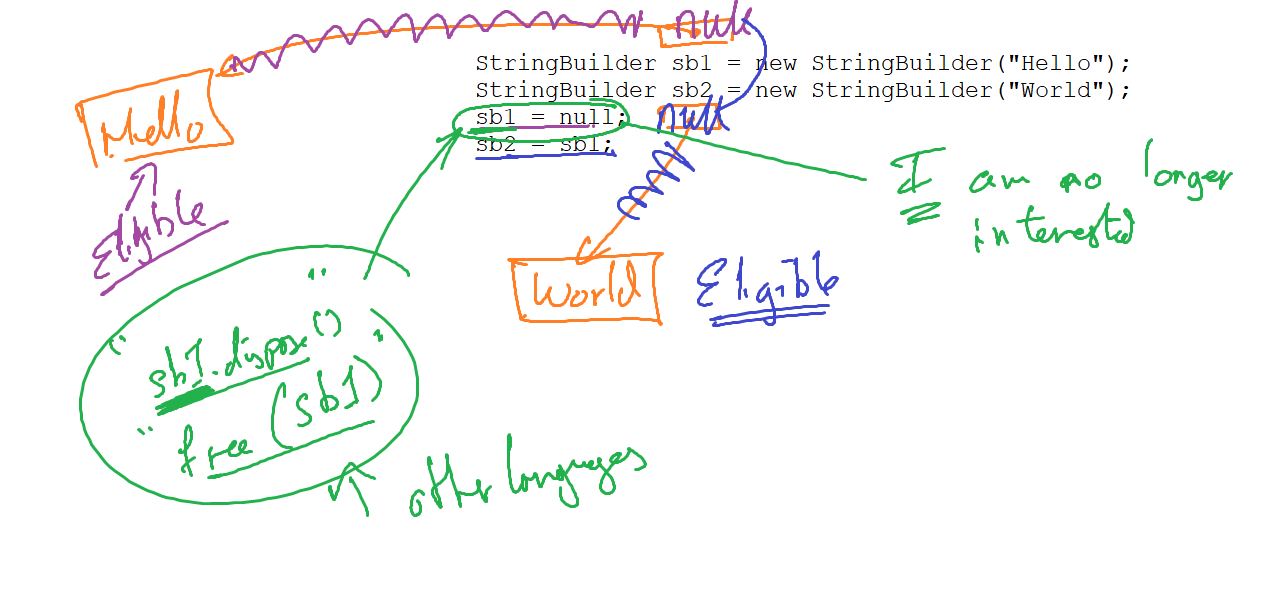 null
StringBuilder sb1 = new StringBuilder("Hello");
StringBuilder sb2 = new StringBuilder("World");
sb1 = null;
null
sb2 = sb1;
Hello
Eligible
I am no longer
interested
World
Eligible
" "
sb1.dispose()
" free (sb1) "
other languages